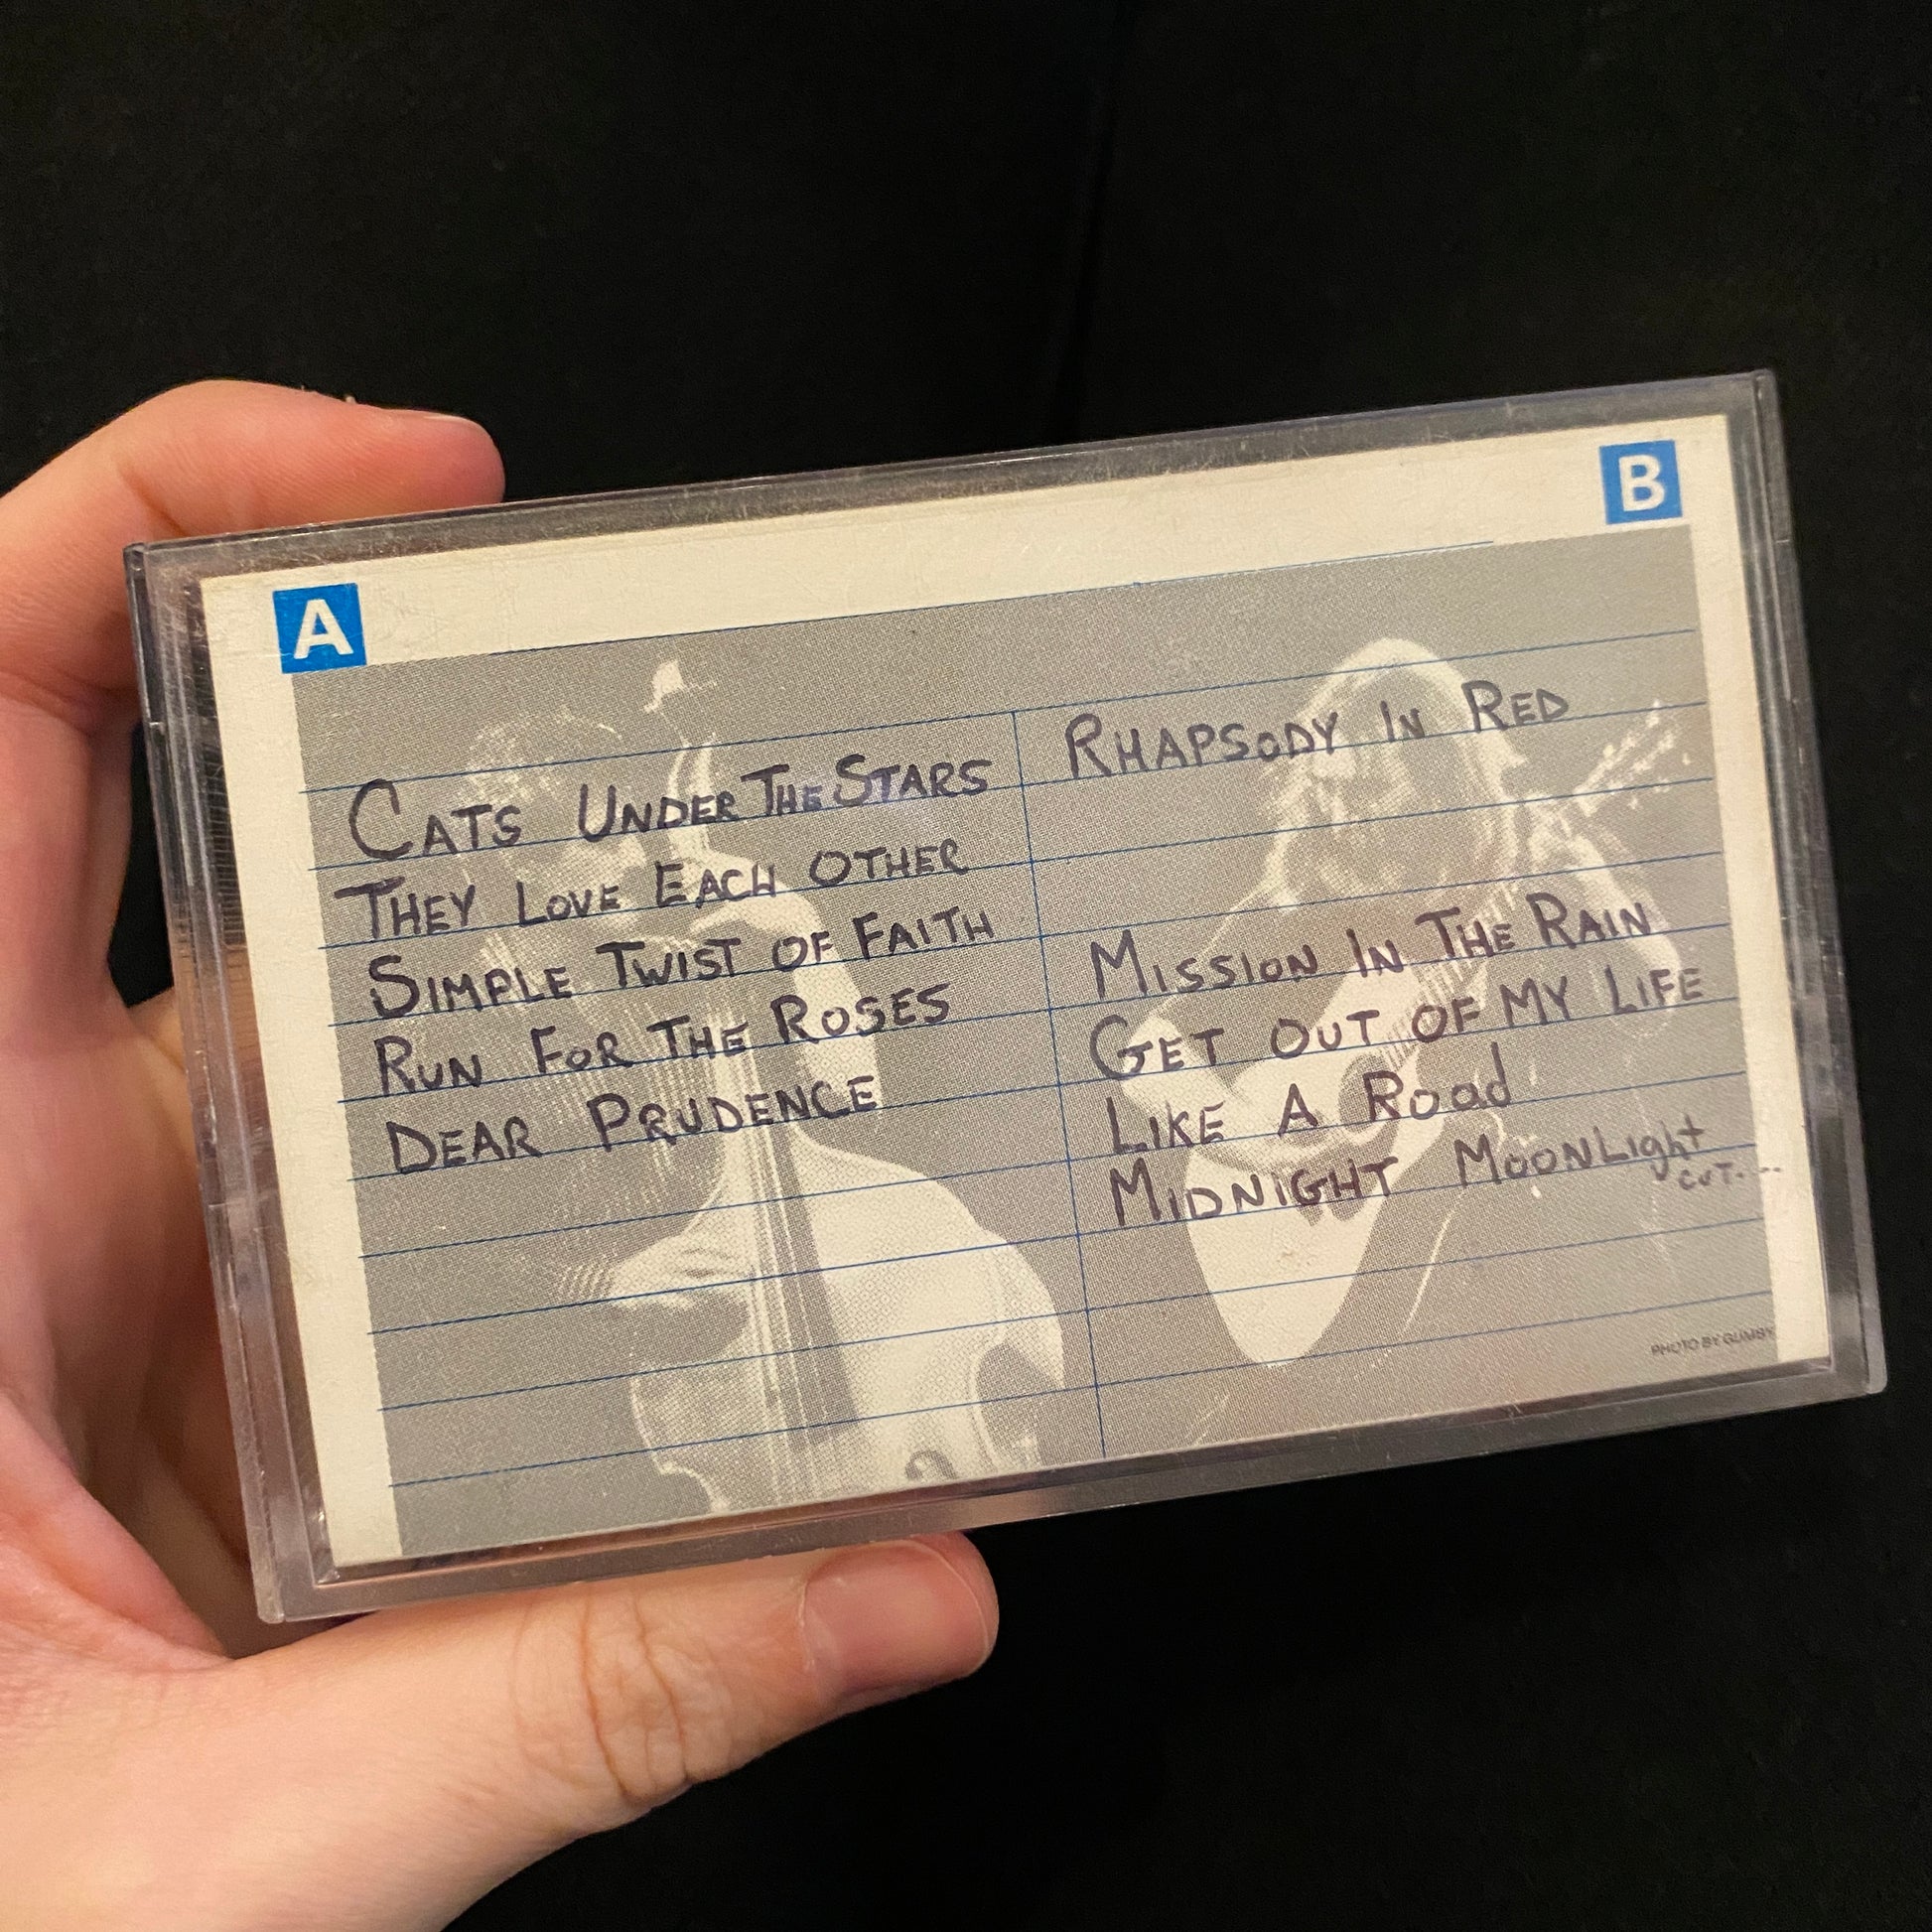 A
CATS UNDER THE STARS
THEY LOVE EACH OTHER
SIMPLE TWIST OF FAITH
RUN FOR THE ROSES
DEAR PRUDENCE
B
RHAPSODY IN RED
MISSION IN THE RAIN
GET OUT OF MY LIFE
LIKE A Road
MIDNiGHT MOONLight
CUT....
PHOTO BY GUMBY